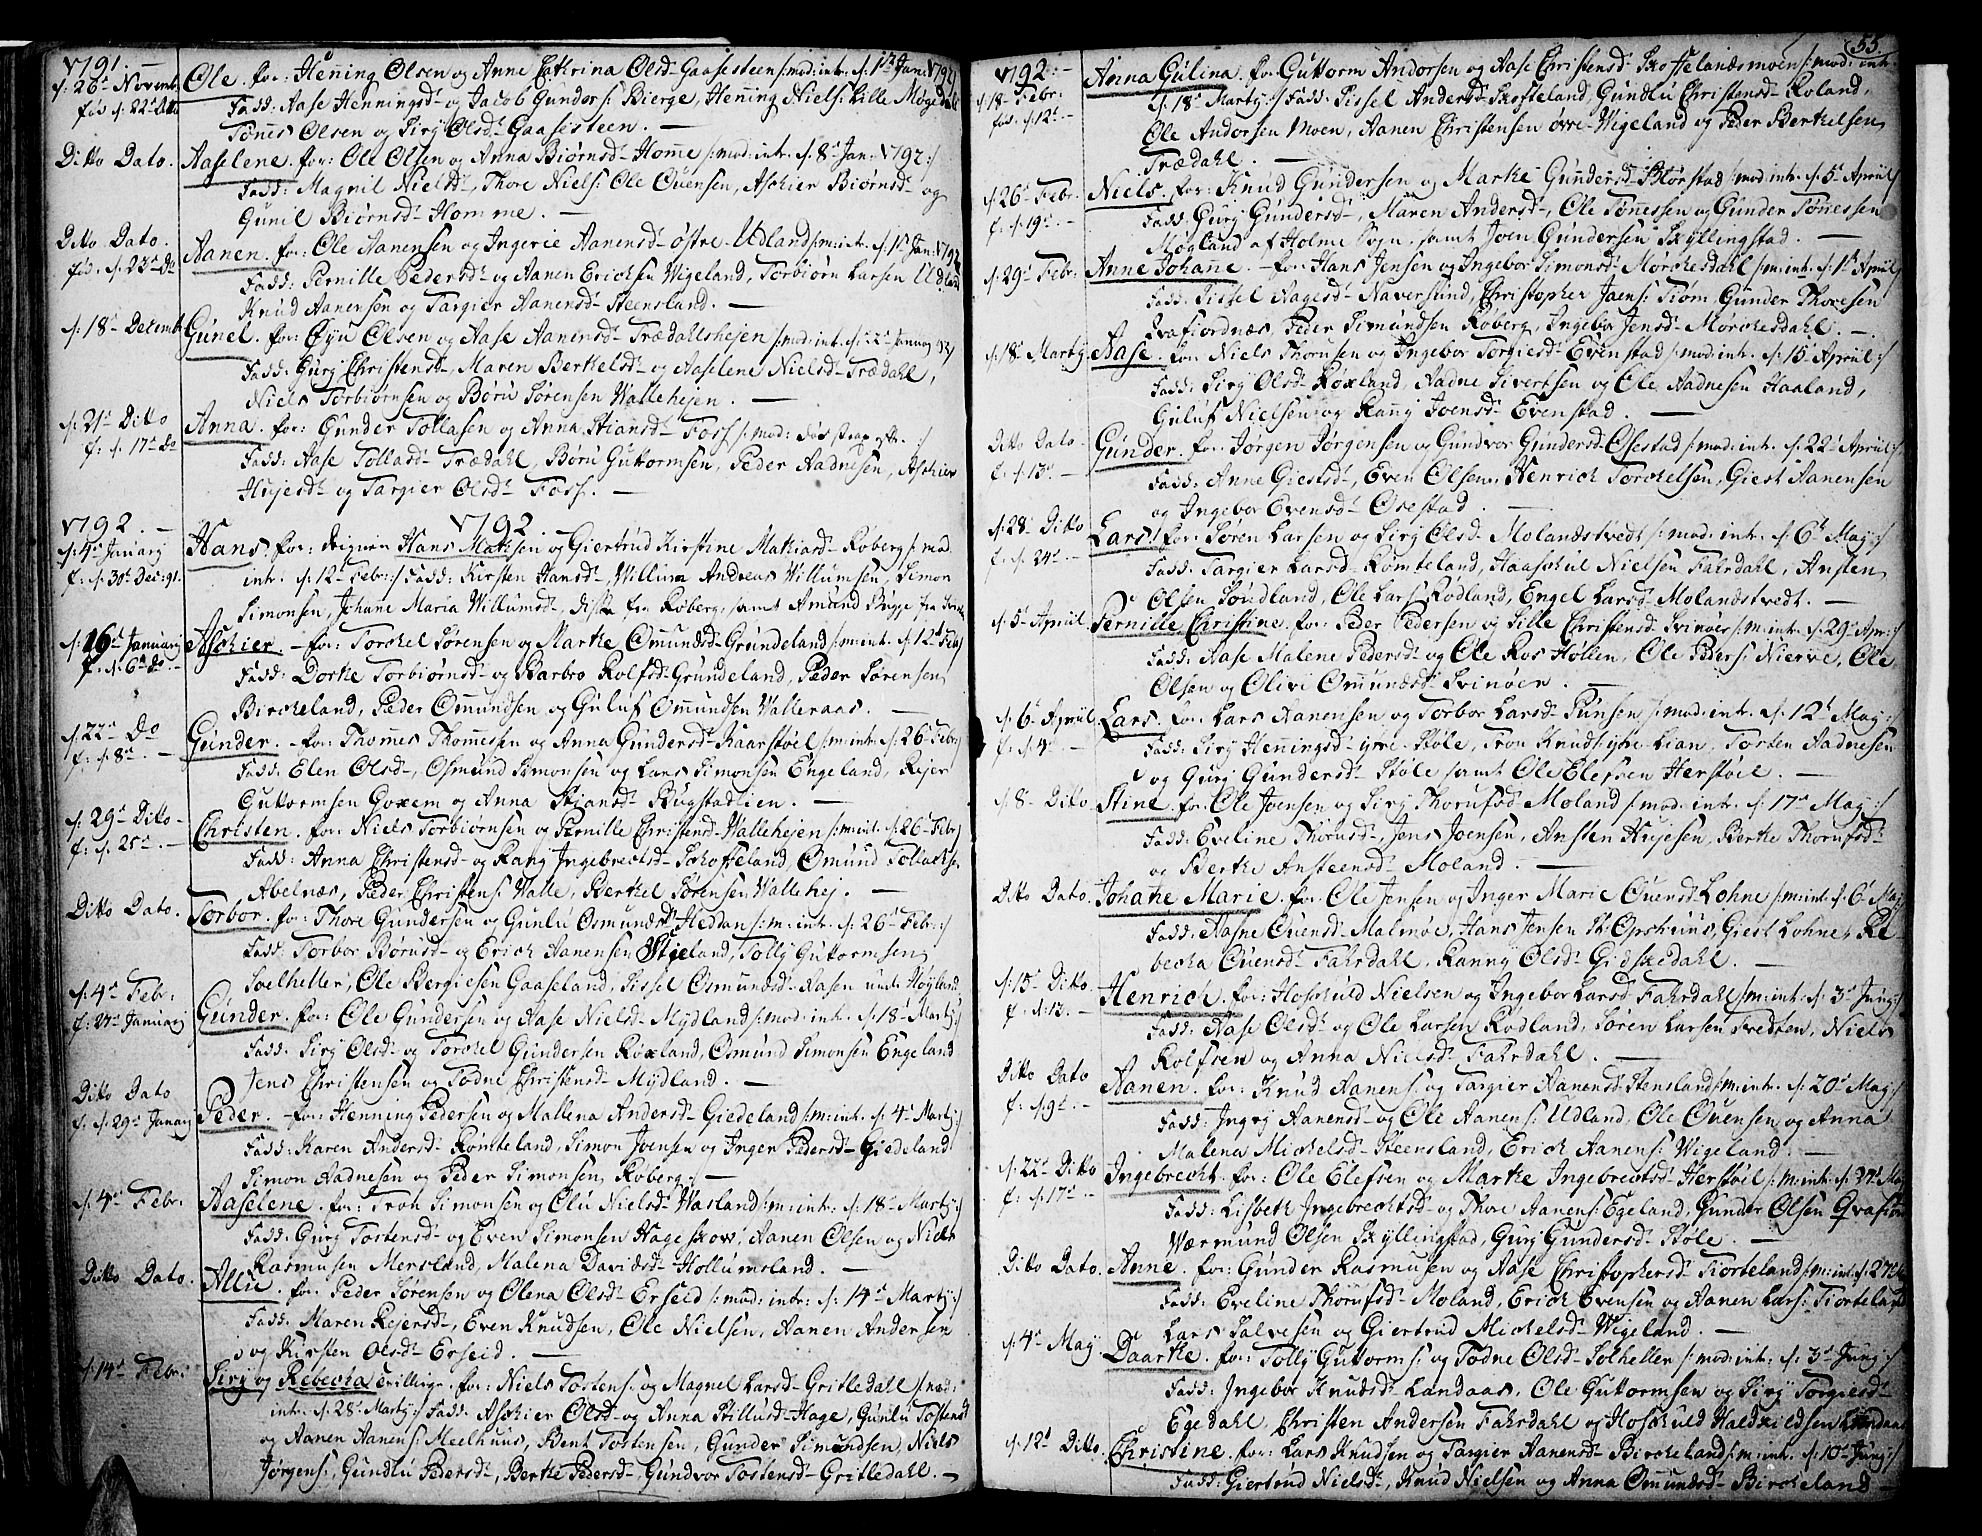 1791.
d: 26d Novembr
fød d. 22d Ditto
Ole. for: Henning Olsen og Anne Cathrina Olsd- Gaasesteen /:mod: intr. d. 1d Jan: 1792/
Fadd: Aase Henningsd- og Jacob Gunders: Bierge, Hening Niels: Lille Møgedal
Tønes Olsen og Siry Olsd- Gaasesteen. —
Ditto Dato.
Aaselene. for: Ole Olsen og Anna Biørnsd- Home /:mod: intr. d. 8d Jan: 1792:/
Fadd: Magnil Nielsd-, Thore Niels: Ole Ouensen, Aschier Biørnsd- og
Gunil Biørnsd- Homme. —
Ditto Dato.
fød. d. 23d Do
Aanen. for: Ole Aanensen og Ingerie Aanensd- østre Udland /:m: intr. d. 15 Jan: 1792
Fadd: Pernille Pedersd- og Aanen Ericksen Wigeland, Torbiørn Larsen Udland
Knud Aanensen og Targier Aanensd- Steensland. —
d: 18d Decembr
Gunel. for: Øyu Olsen og Aase Aanensd- Trædalshejen /:mod: intr. d. 22d Januarij 92/
Fadd: Gurj Christensd-, Maren Berthelsd- og Aaselene Nielsd- Trædahl,
Niels Torbiørnsen og Børu Sørensen Wallehejen. —
d: 21d Ditto
f: d. 17d Do
Anna. for: Gunder Tollasen og Anna Stiansd- Foss /:mod: døde strax efter. :/
Fadd: Aase Tollasd- Trædahl, Børu Guttormsen, Peder Aadnesen, Aschier
Hujesd- og Targier Olsd- Foss. —
1792. —
1792
d: 4d Januarij
f: d. 30d Dec: 91.
Hans. for: Hans Mathisen og Giertrud Kirstine Mathiasd- Røberg /:mod:
intr. d. 12d Febr:/ Fadd: Kirsten Hansd-, Willum Andreas Willumsen, Simon
Simonsen, Johane Maria Willumsd-, fra Røberg, samt Amund Bugge fra
d: 16d Januarij
f: d. 6d do —
Aschier. for: Torchel Sørensen og Marthe Omundsd- Grundeland /:m: intr. d. 12d Feb/
Fadd: Dorthe Torbiørnsd- og Barbro Rolfsd- Grundeland, Peder Sørensen
Birckeland, Peder Omundsen og Guluf Omundsen Walleraas. —
d: 22d Do
f: d. 8d. —
Gunder. for: Thomes Thomesen og Anna Gundersd- Raarstøel /:m: intr. d. 26d Febr/
Fadd: Elen Olsd-, Osmund Simonsen og Lars Simonsen Engeland, Rejer
Guttormsen Goxem og Anna Stiansd- Rugstadlien. —
d: 29d Ditto —
f: d. 25d. —
Christen. for: Niels Torbiørnsen og Pernille Christensd- Wallehejen /:m: int. d. 26d Febr/
Fadd: Anna Christensd- og Rang Ingebrectsd- Schoffeland, Omund Tollachs:
Abelnæs, Peder Christens: Walle, Berthel Sørensen Wallehej. —
Ditto Dato.
Torbor. for: Thore Gundersen og Gunlu Osmundsd- Heddan /:m: intr. d. 26d Febr:/
Fadd: Torbor Børusd- og Erich Aanensen Stieland, Tolly Guttormsen
Soelheller, Ole Bergiesen Gaaseland, Sissel Osmundsd- Rasen under Høyland
d: 4d Febr:
f: 27d Januarij
Gunder. for: Ole Gundersen og Aase Nielsd- Mydland /:mod: intr. d. 18d Marty:/
Fadd: Siry Olsd- og Torchel Gundersen Røxland, Osmund Simonsen Engeland
Jens Christensen og Todne Christensd- Mydland. —
Ditto Dato
f: d. 29d Januarij
Peder. for: Henning Pedersen og Mallena Andersd- Giedeland /:m: int. d. 4d Marty:/
Fadd: Karen Andersd- Romteland, Simon Joensen og Inger Pedersd- Giedeland
Simon Aadnesen og Peder Simonsen, Roberg. —
d: 4d Febr:
Aaselene. for: Tron Simonsen og Olu Nielsd- Wasland /:m: intr. d. 18d Marty:/
Fadd: Gurj Tostensd- og Even Simonsen Hageskow, Aanen Olsen og Niels
Rasmusen Mersland, Malena Davidsd- Hollumsland. —
Ditto Dato.
Allis. for: Peder Sørensen og Olena Olsd- Erseid /:mod: intr: d: 14d Marty:/
Fadd: Maren Rejersd-, Even Knudsen, Ole Nielsen, Aanen Andersen
og Kirsten Olsd- Erseid. —
d: 14d Febr:
Siry og Rebecha tvillinge. for: Niels Tostens: og Magnel Larsd- Gritledahl /:mod:
intr. d. 28d Marty:/ Fadd: Aschier Olsd- og Anna Stillusd- Hage, Gunlu Tostensd-
og Aanen Aanens: Meelhuus, Bent Tostensen, Gunder Simundsen, Niels
Jørgens:, Gundlu Pedersd-, Berthe Pedersd-, Gundvor Tostensd- Gritledahl. —
55.
1792. —
d. 18d Febr:
fød. d. 12d. —
Anna Gulina. for: Guttorm Andorsen og Aase Christensd- Skoffelandsmoen /:mod: intr.
d. 18d Marty:/ Fadd: Sissel Andersd- Skofteland, Gundlu Christensd- Roland,
Ole Andorsen Moen, Aanen Christensen øvre Wigeland og Peder Berthelsen
Trædahl. —
d: 26d Febr.
f. d. 19d. —
Niels. for: Knud Gundersen og Marthe Gundersd- Blørstad /:mod: intr. d. 5d Apriil/
Fadd: Gurj Gundersd-, Maren Andersd-, Ole Tønessen og Gunder Tønessen
Møgland af Holme Sogn. samt Joen Gundersen Skyllingstad. —
d: 29d Febr:
Anne Johane. for: Hans Jensen og Ingebor Simonsd- Mørchesdahl /:m: int. d. 1d Apriil/
Fadd: Sissel Aagesd- Naversund, Christopher Jaens: Tiøm, Gunder Thoresen
Qvafiordnæs, Peder Simundsen Røberg, Ingebor Jensd- Mørchesdahl. —
d: 18d Marty
Aase. for: Niels Thorusen og Ingebor Torgiesd- Evenstad /:mod: intr. d. 15d Apriil:/
Fadd: Siry Olsd- Røxland, Aadne Sivertsen og Ole Aadnesen Haaland,
Guluf Nielsen og Rang Joensd- Evenstad. —
Ditto Dato
f: d: 13d. —
Gunder. for: Jørgen Jørgensen og Gundvor Gundersd- Osestad /:mod: intr. d: 22d Apriil:/
Fadd: Anne Giestsd-, Even Olsen, Henrich Torchelsen, Giest Aanensen
og Ingebor Evensd- Osestad. —
d: 28d Ditto
f. d: 24d. —
Lars. for: Søren Larsen og Siry Olsd- Molandstvedt /:mod: intr. d: 6d May:/
Fadd: Targier Larsd- Romteland, Haaschul Nielsen Fahrdahl, Ansten
Olsen Søudland, Ole Lars: Rødland, Engel Larsd- Molandstvedt. —
d: 5d Apriil
Pernille Christine. for: Peder Pedersen og Sille Christensd- Svinøer /:m: int. d: 29d Apr:/
Fadd: Aase Malene Pedersd- og Ole Ros Hollen, Ole Peders: Nierve, Ole
Olsen og Olivi Omundsd- Svinøer. —
d: 6d Apriil
f: d: 4d —
Lars. for: Lars Aanensen og Torbor Larsd- Punsen /:mod: intr. d: 12d May:/
Fadd: Siry Heningsd- yvre Støle, Tron Knudsen yvre Lian, Tosten Aadnesen
og Gurj Gundersd- Støle samt Ole Elefsen Herstøel. —
d: 8d Ditto
Stine. for: Ole Joensen og Siry Thorufsd- Moland /:mod: intr. d: 17d May:/
Fadd: Eveline Thorusd-, Jens Joensen, Ansten Hujesen, Berthe Thorufsd-
og Berthe Ansteensd- Moland. —
Ditto Dato.
Johane Marie. for: Ole Jensen og Inger Marie Ouensd- Lohne /:m: int. d. 6d May
Fadd: Aasne Ouensd- Malmøe, Hans Jensen St. Opsahuus, Giest Lohne, Re-
becha Ouensd- Fahrdahl, Ranny Olsd- Gidskedahl. —
d: 15d Ditto
f. d: 12. —
Henrich. for: Hoschuld Nielsen og Ingebor Larsd- Fahrdahl /:m: int: d: 3d Juny:/
Fadd: Aase Olsd- og Ole Larsen Rodland, Søren Larsen Tvedten, Niels
Rolfsen og Anna Nielsd- Fahrdahl. —
Ditto Dato
f: d: 9d. —
Aanen. for: Knud Aanens: og Targier Aanensd- Stensland /:m: intr. d: 20d May:/
Fadd: Ingrj Aanensd- og Ole Aanens: Udland, Ole Ouensen og Anna
Malena Michelsd- Steensland, Erich Aanens: Wigeland. —
d: 22d Ditto
f: d: 17d. —
Ingebrecht. for: Ole Elefsen og Marthe Ingebrectsd- Herstøel /:m: int. d: 27d May
Fadd: Lisbeth Ingebrechtsd- og Thore Aanens: Egeland, Gunder Olsen Qvafiord
Wærmund Olsen Skyllingstad, Gurj Gundersd- Støle. —
Ditto Dato.
Anne. for: Gunder Rasmusen og Aase Christophersd- Tiorteland /:m: int. d: 27d
Fadd: Eveline Thorufsd- Moland, Erich Evensen og Aanen Lars: Tiorteland
Lars Salvesen og Giertrud Michelsd- Wigeland. —
d: 4d May
Daarthe. for: Tolly Guttorms: og Todne Olsd- Solheller /:mod: int: d: 3d Juny:/
Fadd: Ingebor Knudsd- Landaas, Ole Guttormsen og Siry Torgiesd-
Egedahl, Christen Andersen Fahrdahl og Hoschuld Haldkildsen Landaas
d: 12d Ditto.
Christine. for: Lars Knudsen og Targier Aanensd- Birckeland /:m: int. d: 10d Juny:/
Fadd: Giertrud Nielsd-, Knud Nielsen og Anna Omundsd- Birckeland —